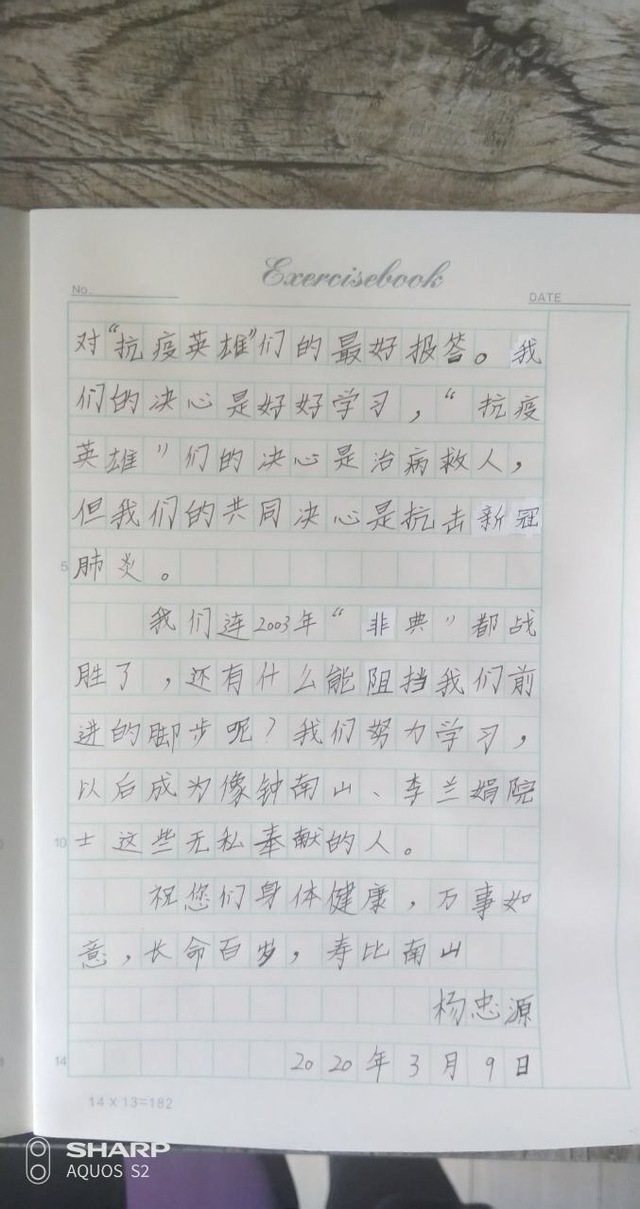 Exercisebook
No.
DATE
对“抗疫英雄”们的最好报答。我
们的决心是好好学习，“抗疫
英雄”们的决心是治病救人，
但我们的共同决心是抗击新冠
5 肺炎。
我们连2003年“非典”都战
胜了，还有什么能阻挡我们前
进的脚步呢？我们努力学习，
以后成为像钟南山、李兰娟院
10 士这些无私奉献的人。
祝您们身体健康，万事如
意，长命百岁，寿比南山
杨忠源
14 2020年3月9日
14×13=182
SHARP
AQUOS S2